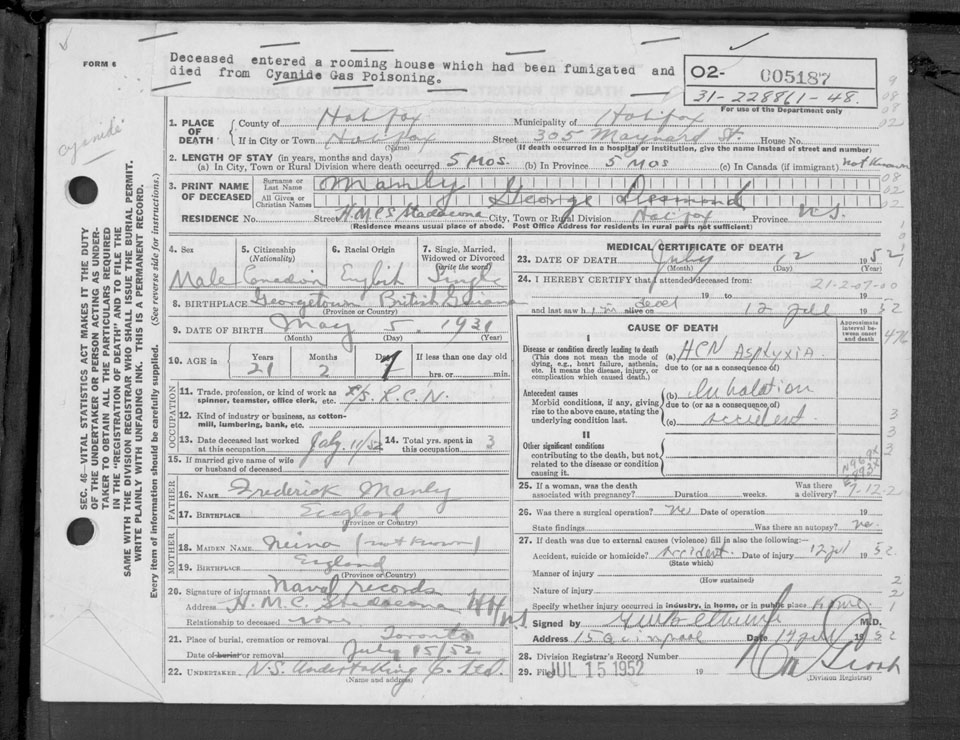 FORM 6
Deceased entered a rooming house which had been fumigated and
died from Cyanide Gas Poisoning.
02- 005187
31-228861-48.
For use of the Department only
cyanide
PROVINCE OF NOVA SCOTIA REGISTRATION OF DEATH
1. PLACE OF DEATH County of Halifax Municipality of Halifax
If in City or Town Halifax (Name) Street 305 Maynard St. House No.
(If death occurred in a hospital or institution, give the name instead of street and number)
2. LENGTH OF STAY (in years, months and days)
(a) In City, Town or Rural Division where death occurred 5 mos. (b) In Province 5 mos (c) In Canada (if immigrant) not known
3. PRINT NAME OF DECEASED
Surname or Last Name Manly
All Given or Christian Names George Desmond
RESIDENCE No. Street H.M.C.S. Stadacona City, Town or Rural Division Halifax Province N.S.
(Residence means usual place of abode. Post Office Address for residents in rural parts not sufficient)
4. Sex Male
5. Citizenship (Nationality) Canadian
6. Racial Origin English
7. Single, Married, Widowed or Divorced (write the word) Single
8. BIRTHPLACE Georgetown British Guiana
(Province or Country)
9. DATE OF BIRTH May 5. 1931
(Month) (Day) (Year)
10. AGE in Years 21 Months 2 Days 7 If less than one day old hrs. or min.
OCCUPATION
11. Trade, profession, or kind of work as spinner, teamster, office clerk, etc. R.C.N.
12. Kind of industry or business, as cotton-mill, lumbering, bank, etc.
13. Date deceased last worked at this occupation July 11/52
14. Total yrs. spent in this occupation 3
15. If married give name of wife or husband of deceased
FATHER
16. NAME Frederick Manly
17. BIRTHPLACE England
(Province or Country)
MOTHER
18. MAIDEN NAME Neina (not known)
19. BIRTHPLACE England
(Province or Country)
20. Signature of informant Naval records
Address H.M.C. Stadacona N.S
Relationship to deceased none
21. Place of burial, cremation or removal Toronto
Date of burial or removal July 15/52
22. UNDERTAKER N.S. Undertaking Co. Ltd.
(Name and address)
MEDICAL CERTIFICATE OF DEATH
23. DATE OF DEATH July 12 1952
(Month) (Day) (Year)
24. I HEREBY CERTIFY that I attended deceased from:
21-2-07-00
19 to 19
and last saw him alive on dead 12 Jul 1952
CAUSE OF DEATH
Approximate interval between onset and death
I
Disease or condition directly leading to death
(This does not mean the mode of dying, e.g., heart failure, asthenia, etc. It means the disease, injury, or complication which caused death.)
(a) HCN Asphyxia
due to (or as a consequence of)
Antecedent causes
Morbid conditions, if any, giving rise to the above cause, stating the underlying condition last.
(b) Inhalation
due to (or as a consequence of)
(c) accident
II
Other significant conditions
contributing to the death, but not related to the disease or condition causing it.
25. If a woman, was the death associated with pregnancy? Duration weeks. Was there a delivery?
26. Was there a surgical operation? No Date of operation 19
State findings Was there an autopsy? no.
27. If death was due to external causes (violence) fill in also the following:
Accident, suicide or homicide? accident. Date of injury 12 Jul 1952
(State which)
Manner of injury
(How sustained)
Nature of injury
Specify whether injury occurred in industry, in home, or in public place
Signed by M.D.
Address 15 Quinpool Date 14 July 1952
28. Division Registrar's Record Number
29. Filed JUL 15 1952 19
(Division Registrar)
SEC. 46—VITAL STATISTICS ACT MAKES IT THE DUTY
OF THE UNDERTAKER OR PERSON ACTING AS UNDER-
TAKER TO OBTAIN ALL THE PARTICULARS REQUIRED
IN THE "REGISTRATION OF DEATH" AND TO FILE THE
SAME WITH THE DIVISION REGISTRAR WHO SHALL ISSUE THE BURIAL PERMIT.
WRITE PLAINLY WITH UNFADING INK. THIS IS A PERMANENT RECORD.
Every item of information should be carefully supplied. (See reverse side for instructions.)